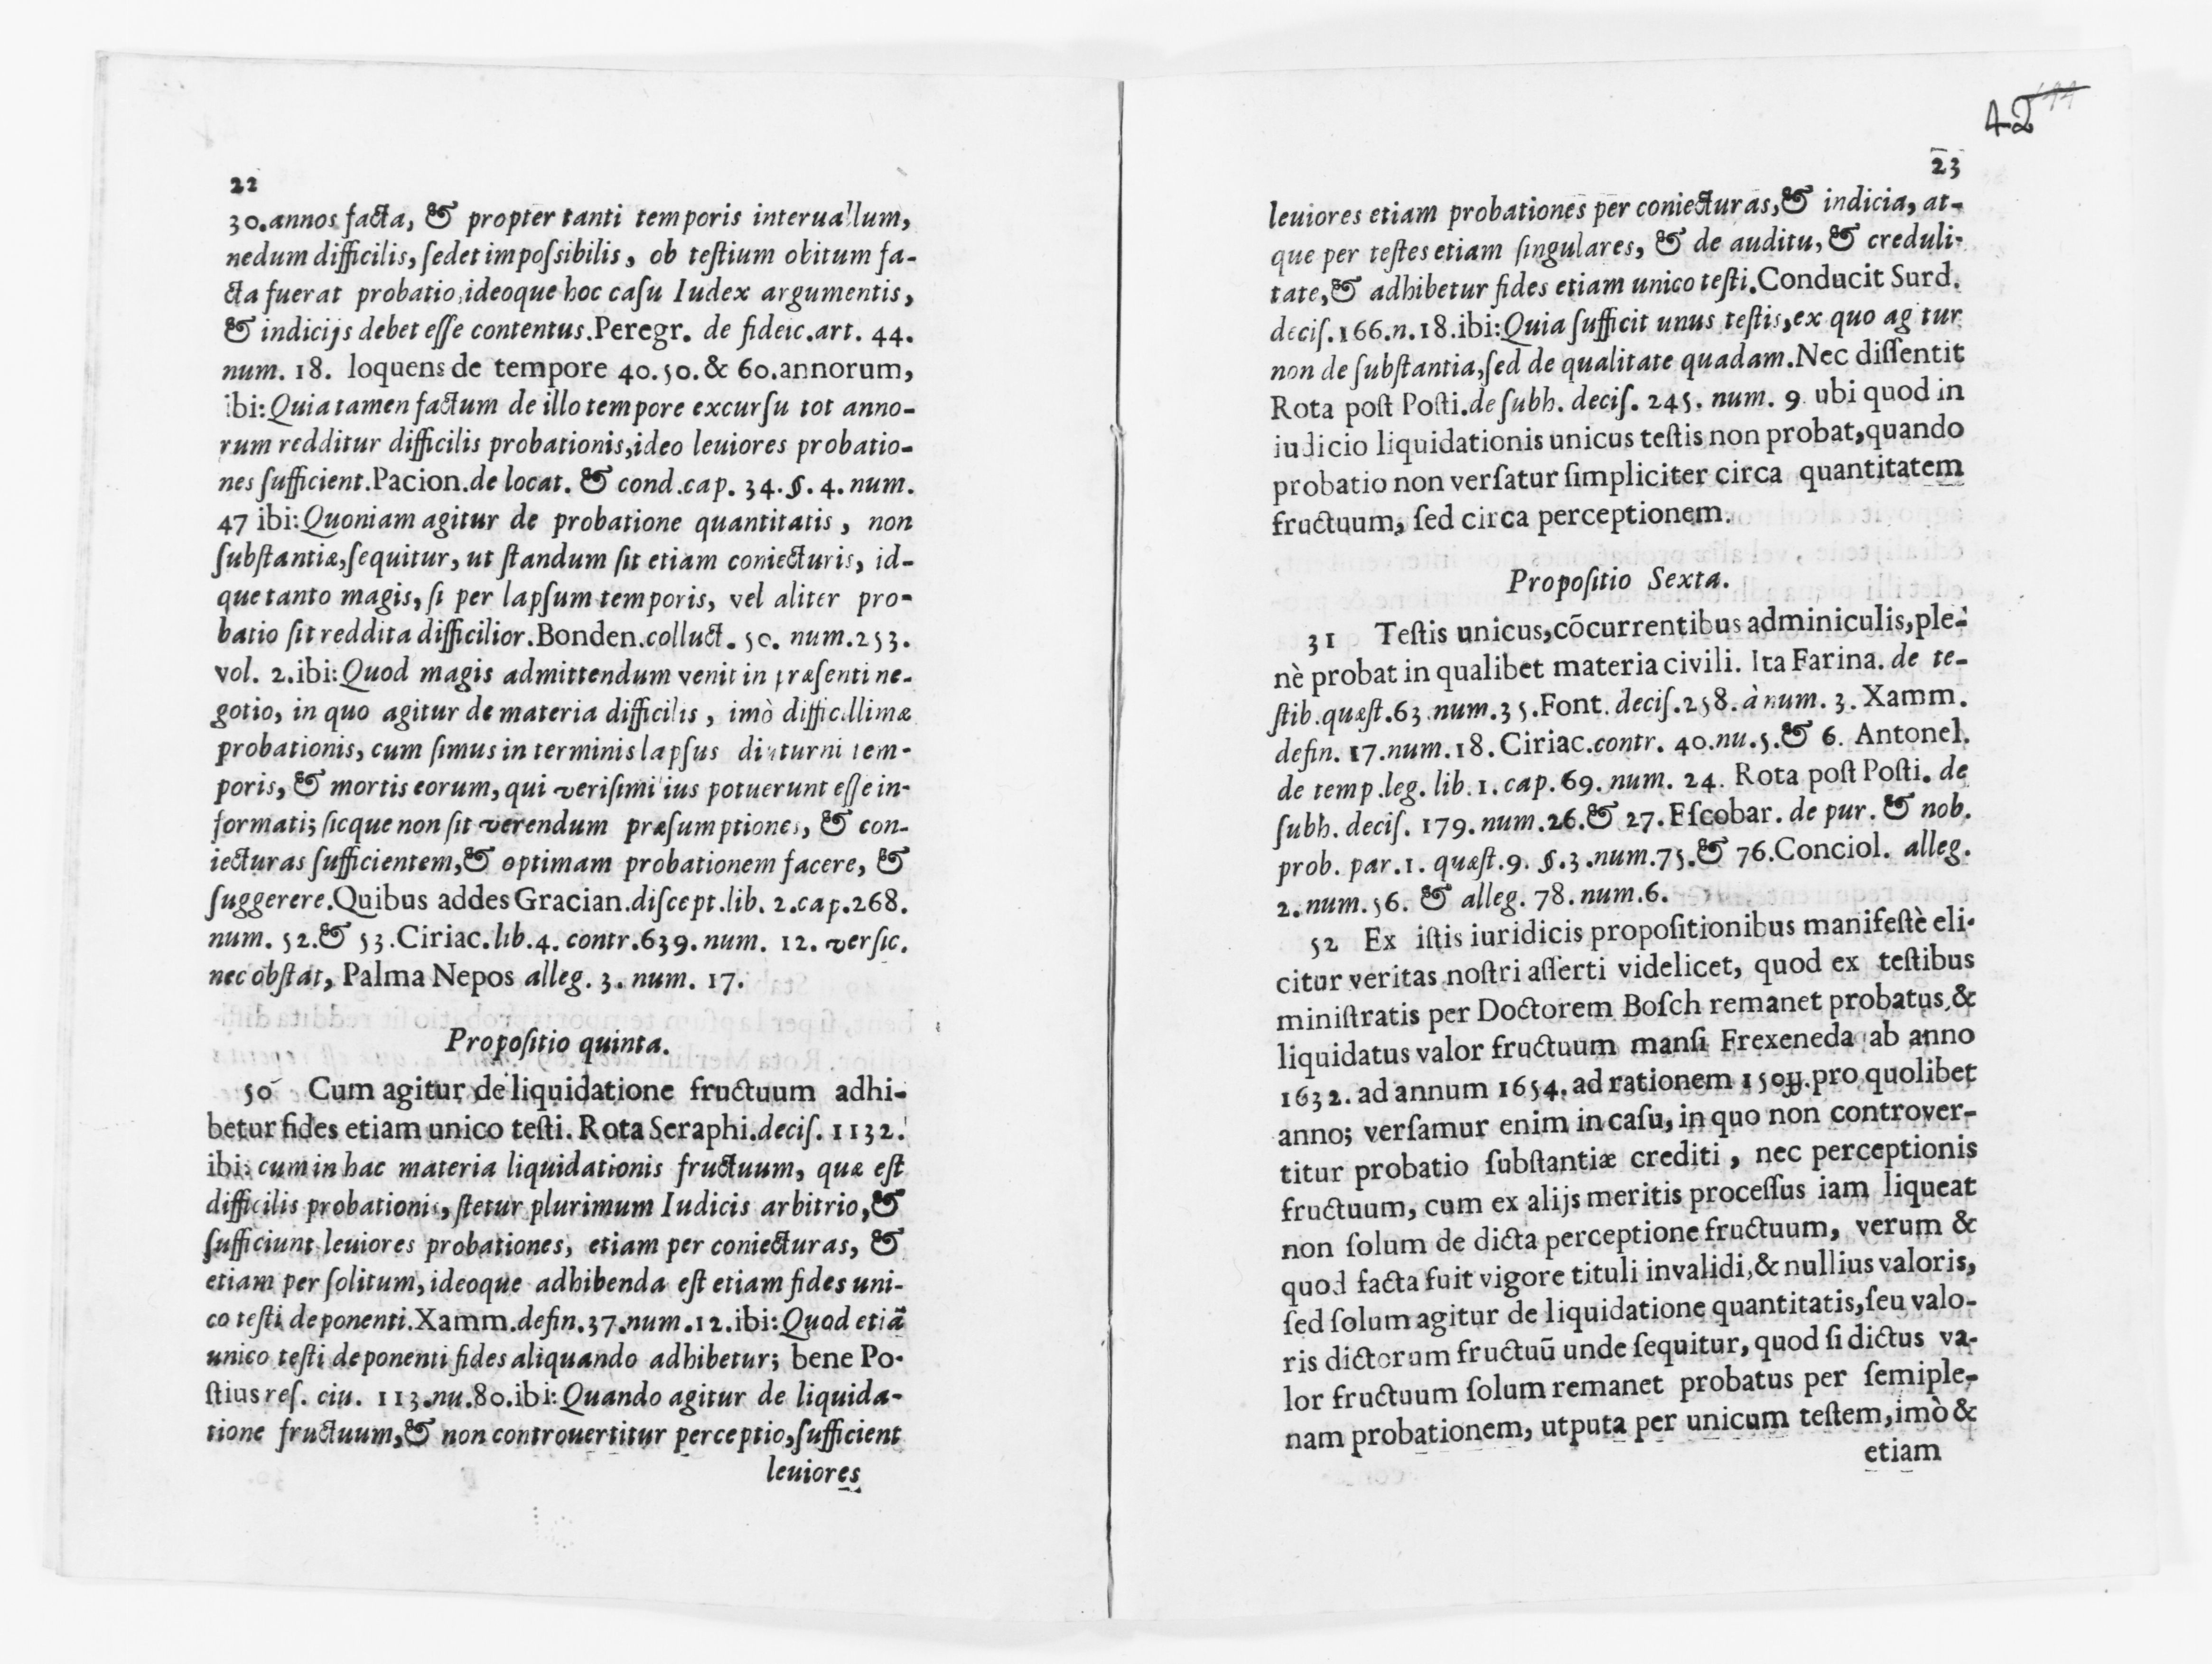 22
30.annos facta, & propter tanti temporis interuallum,
nedum difficilis, sed et impossibilis, ob testium obitum fa-
cta fuerat probatio, ideoque hoc casu Iudex argumentis,
& indicijs debet esse contentus. Peregr. de fideic. art. 44.
num. 18. loquens de tempore 40. 50. & 60. annorum,
ibi: Quia tamen factum de illo tempore excursu tot anno-
rum redditur difficilis probationis, ideo leuiores probatio-
nes sufficient. Pacion. de locat. & cond. cap. 34. §. 4. num.
47 ibi: Quoniam agitur de probatione quantitatis, non
substantiæ, sequitur, ut standum sit etiam coniecturis, id-
que tanto magis, si per lapsum temporis, vel aliter pro-
batio sit reddita difficilior. Bonden. colluct. 50. num. 253.
vol. 2. ibi: Quod magis admittendum venit in præsenti ne-
gotio, in quo agitur de materia difficilis, imò difficillimæ
probationis, cum simus in terminis lapsus diuturni tem-
poris, & mortis eorum, qui verisimilius potuerunt esse in-
formati; sicque non sit verendum præsumptiones, & con-
iecturas sufficientem, & optimam probationem facere, &
suggerere. Quibus addes Gracian. discept. lib. 2. cap. 268.
num. 52. & 53. Ciriac. lib. 4. contr. 639. num. 12. versic.
nec obstat, Palma Nepos alleg. 3. num. 17.
Propositio quinta.
50 Cum agitur de liquidatione fructuum adhi-
betur fides etiam unico testi. Rota Seraphi. decis. 1132.
ibi: cum in hac materia liquidationis fructuum, quæ est
difficilis probationis, stetur plurimum Iudicis arbitrio, &
sufficiunt leuiores probationes, etiam per coniecturas, &
etiam per solitum, ideoque adhibenda est etiam fides uni-
co testi deponenti. Xamm. defin. 37. num. 12. ibi: Quod etiã
unico testi deponenti fides aliquando adhibetur; bene Po-
stius res. ciu. 113. nu. 80. ibi: Quando agitur de liquida-
tione fructuum, & non controuertitur perceptio, sufficient
leuiores
42
23
leuiores etiam probationes per coniecturas, & indicia, at-
que per testes etiam singulares, & de auditu, & creduli-
tate, & adhibetur fides etiam unico testi. Conducit Surd.
decis. 166. n. 18. ibi: Quia sufficit unus testis, ex quo agitur
non de substantia, sed de qualitate quadam. Nec dissentit
Rota post Posti. de subh. decis. 245. num. 9 ubi quod in
iudicio liquidationis unicus testis non probat, quando
probatio non versatur simpliciter circa quantitatem
fructuum, sed circa perceptionem.
Propositio Sexta.
31 Testis unicus, cõcurrentibus adminiculis, ple-
nè probat in qualibet materia civili. Ita Farina. de te-
stib. quæst. 63. num. 35. Font. decis. 258. à num. 3. Xamm.
defin. 17. num. 18. Ciriac. contr. 40. nu. 5. & 6. Antonel.
de temp. leg. lib. 1. cap. 69. num. 24. Rota post Posti. de
subh. decis. 179. num. 26. & 27. Escobar. de pur. & nob.
prob. par. 1. quæst. 9. §. 3. num. 75. & 76. Conciol. alleg.
2. num. 56. & alleg. 78. num. 6.
52 Ex istis iuridicis propositionibus manifestè eli-
citur veritas nostri asserti videlicet, quod ex testibus
ministratis per Doctorem Bosch remanet probatus, &
liquidatus valor fructuum mansi Frexeneda ab anno
1632. ad annum 1654. ad rationem 150 pro quolibet
anno; versamur enim in casu, in quo non controver-
titur probatio substantiæ crediti, nec perceptionis
fructuum, cum ex alijs meritis processus iam liqueat
non solum de dicta perceptione fructuum, verum &
quod facta fuit vigore tituli invalidi, & nullius valoris,
sed solum agitur de liquidatione quantitatis, seu valo-
ris dictorum fructuũ unde sequitur, quod si dictus va-
lor fructuum solum remanet probatus per semiple-
nam probationem, utputa per unicum testem, imò &
etiam